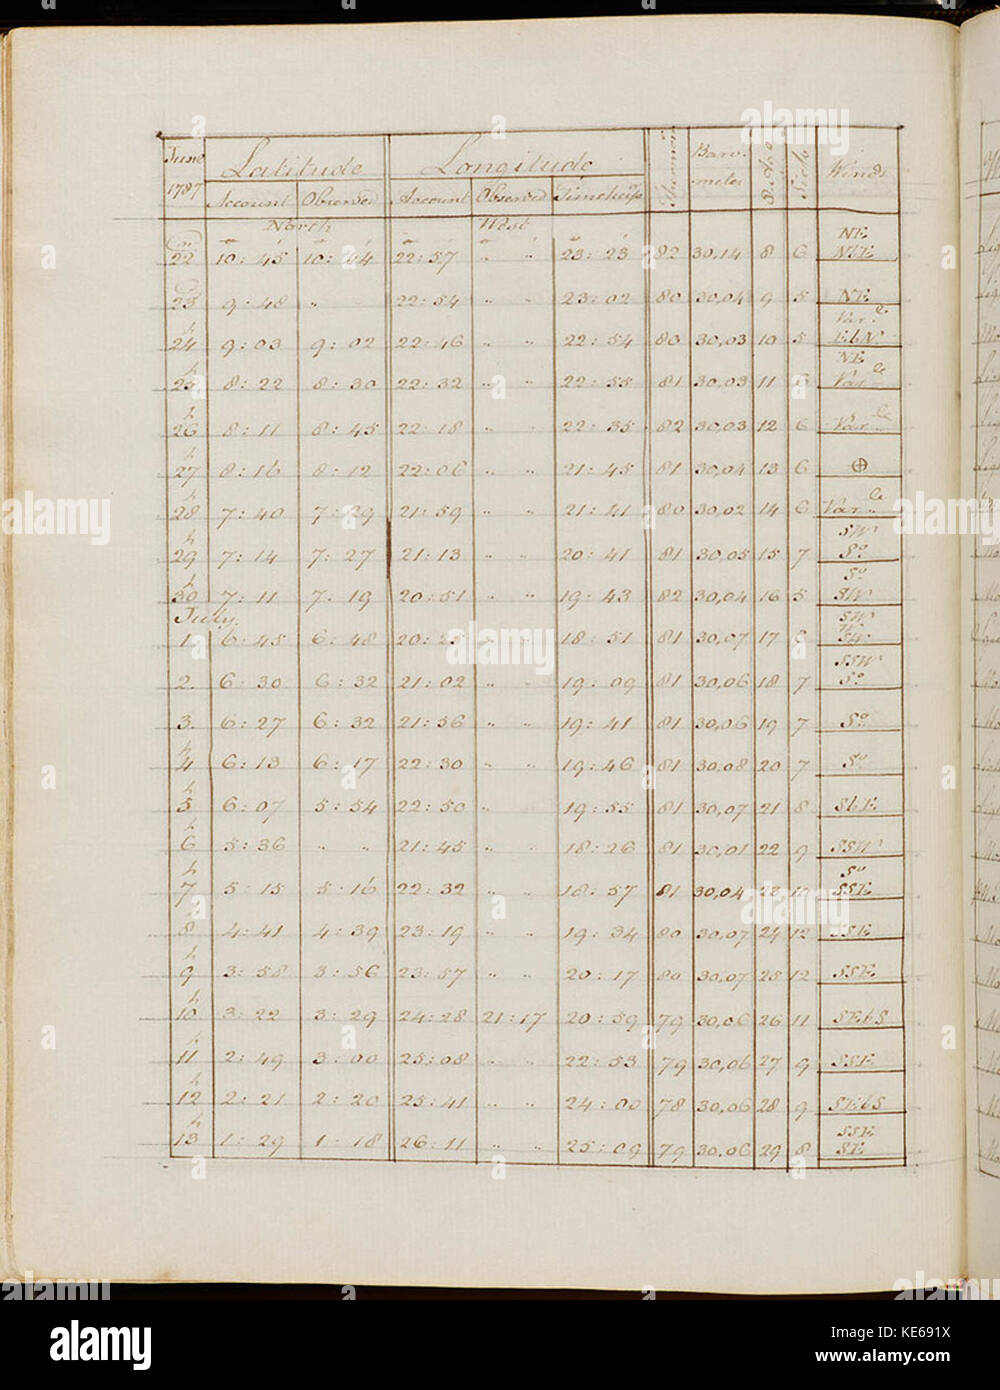 June 1787 Latitude Longitude Baro-meter Winds
Account Observed Account Observed Timekeep
North West
22 10:45 10:44 22:57 " " 23:23 82 30,14 8 6 NE NbE
23 9:48 " 22:54 " " 23:02 80 30,04 9 5 NE
24 9:03 9:02 22:46 " " 22:54 80 30,03 10 5 Var.le EbN
25 8:22 8:30 22:32 " " 22:55 81 30,03 11 6 NE Var.le
26 8:11 8:45 22:18 " " 22:35 82 30,03 12 6 Var.le
27 8:16 8:12 22:06 " " 21:45 81 30,04 13 6 ⊕
28 7:40 7:29 21:59 " " 21:41 80 30,02 14 6 Var.le
29 7:14 7:27 21:13 " " 20:41 81 30,05 15 7 SW So
30 7:11 7:19 20:51 " " 19:43 82 30,04 16 5 So SW
July
1. 6:45 6:48 20:25 " 18:51 81 30,07 17 SW W SW
2. 6:30 6:32 21:02 " " 19:09 81 30,06 18 7 SSW So
3. 6:27 6:32 21:56 " " 19:41 81 30,06 19 7 So
4 6:13 6:17 22:30 " " 19:46 81 30,08 20 7 So
5 6:07 5:54 22:50 " 19:55 81 30,07 21 8 SbE
6 5:36 " " 21:45 " " 18:26 81 30,01 22 9 SSW
7 5:15 5:16 22:32 " " 18:57 81 30,04 10 So SSE
8 4:41 4:39 23:19 " " 19:34 80 30,07 24 12 SSE
9 3:58 3:56 23:57 " " 20:17 80 30,07 25 12 SSE
10 3:22 3:29 24:28 21:17 20:59 79 30,06 26 11 SEbS
11 2:49 3:00 25:08 " " 22:53 79 30,06 27 9 SSE
12 2:21 2:20 25:41 " " 24:00 78 30,06 28 9 SEbS
13 1:29 1:18 26:11 " " 25:09 79 30,06 29 8 SSE SE
alamy stock photo
a alamy
alamy
Image ID: KE691X
www.alamy.com